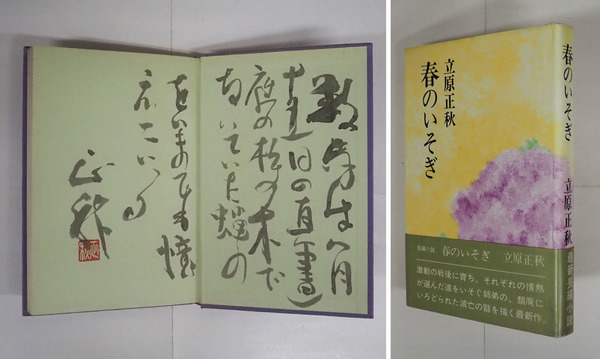 八月
十五日の真昼
庭の松の木で
ないていた蝉の
をいまでも憶
えている
正秋
立原正秋
春のいそぎ
長編小説 春のいそぎ 立原正秋
激動の戦後に育ち、それぞれの情熱
が選んだ道をいそぐ姉弟の、頽廃に
いろどられた滅亡の翳を描く最新作。
春のいそぎ
立原正秋
最新長編小説